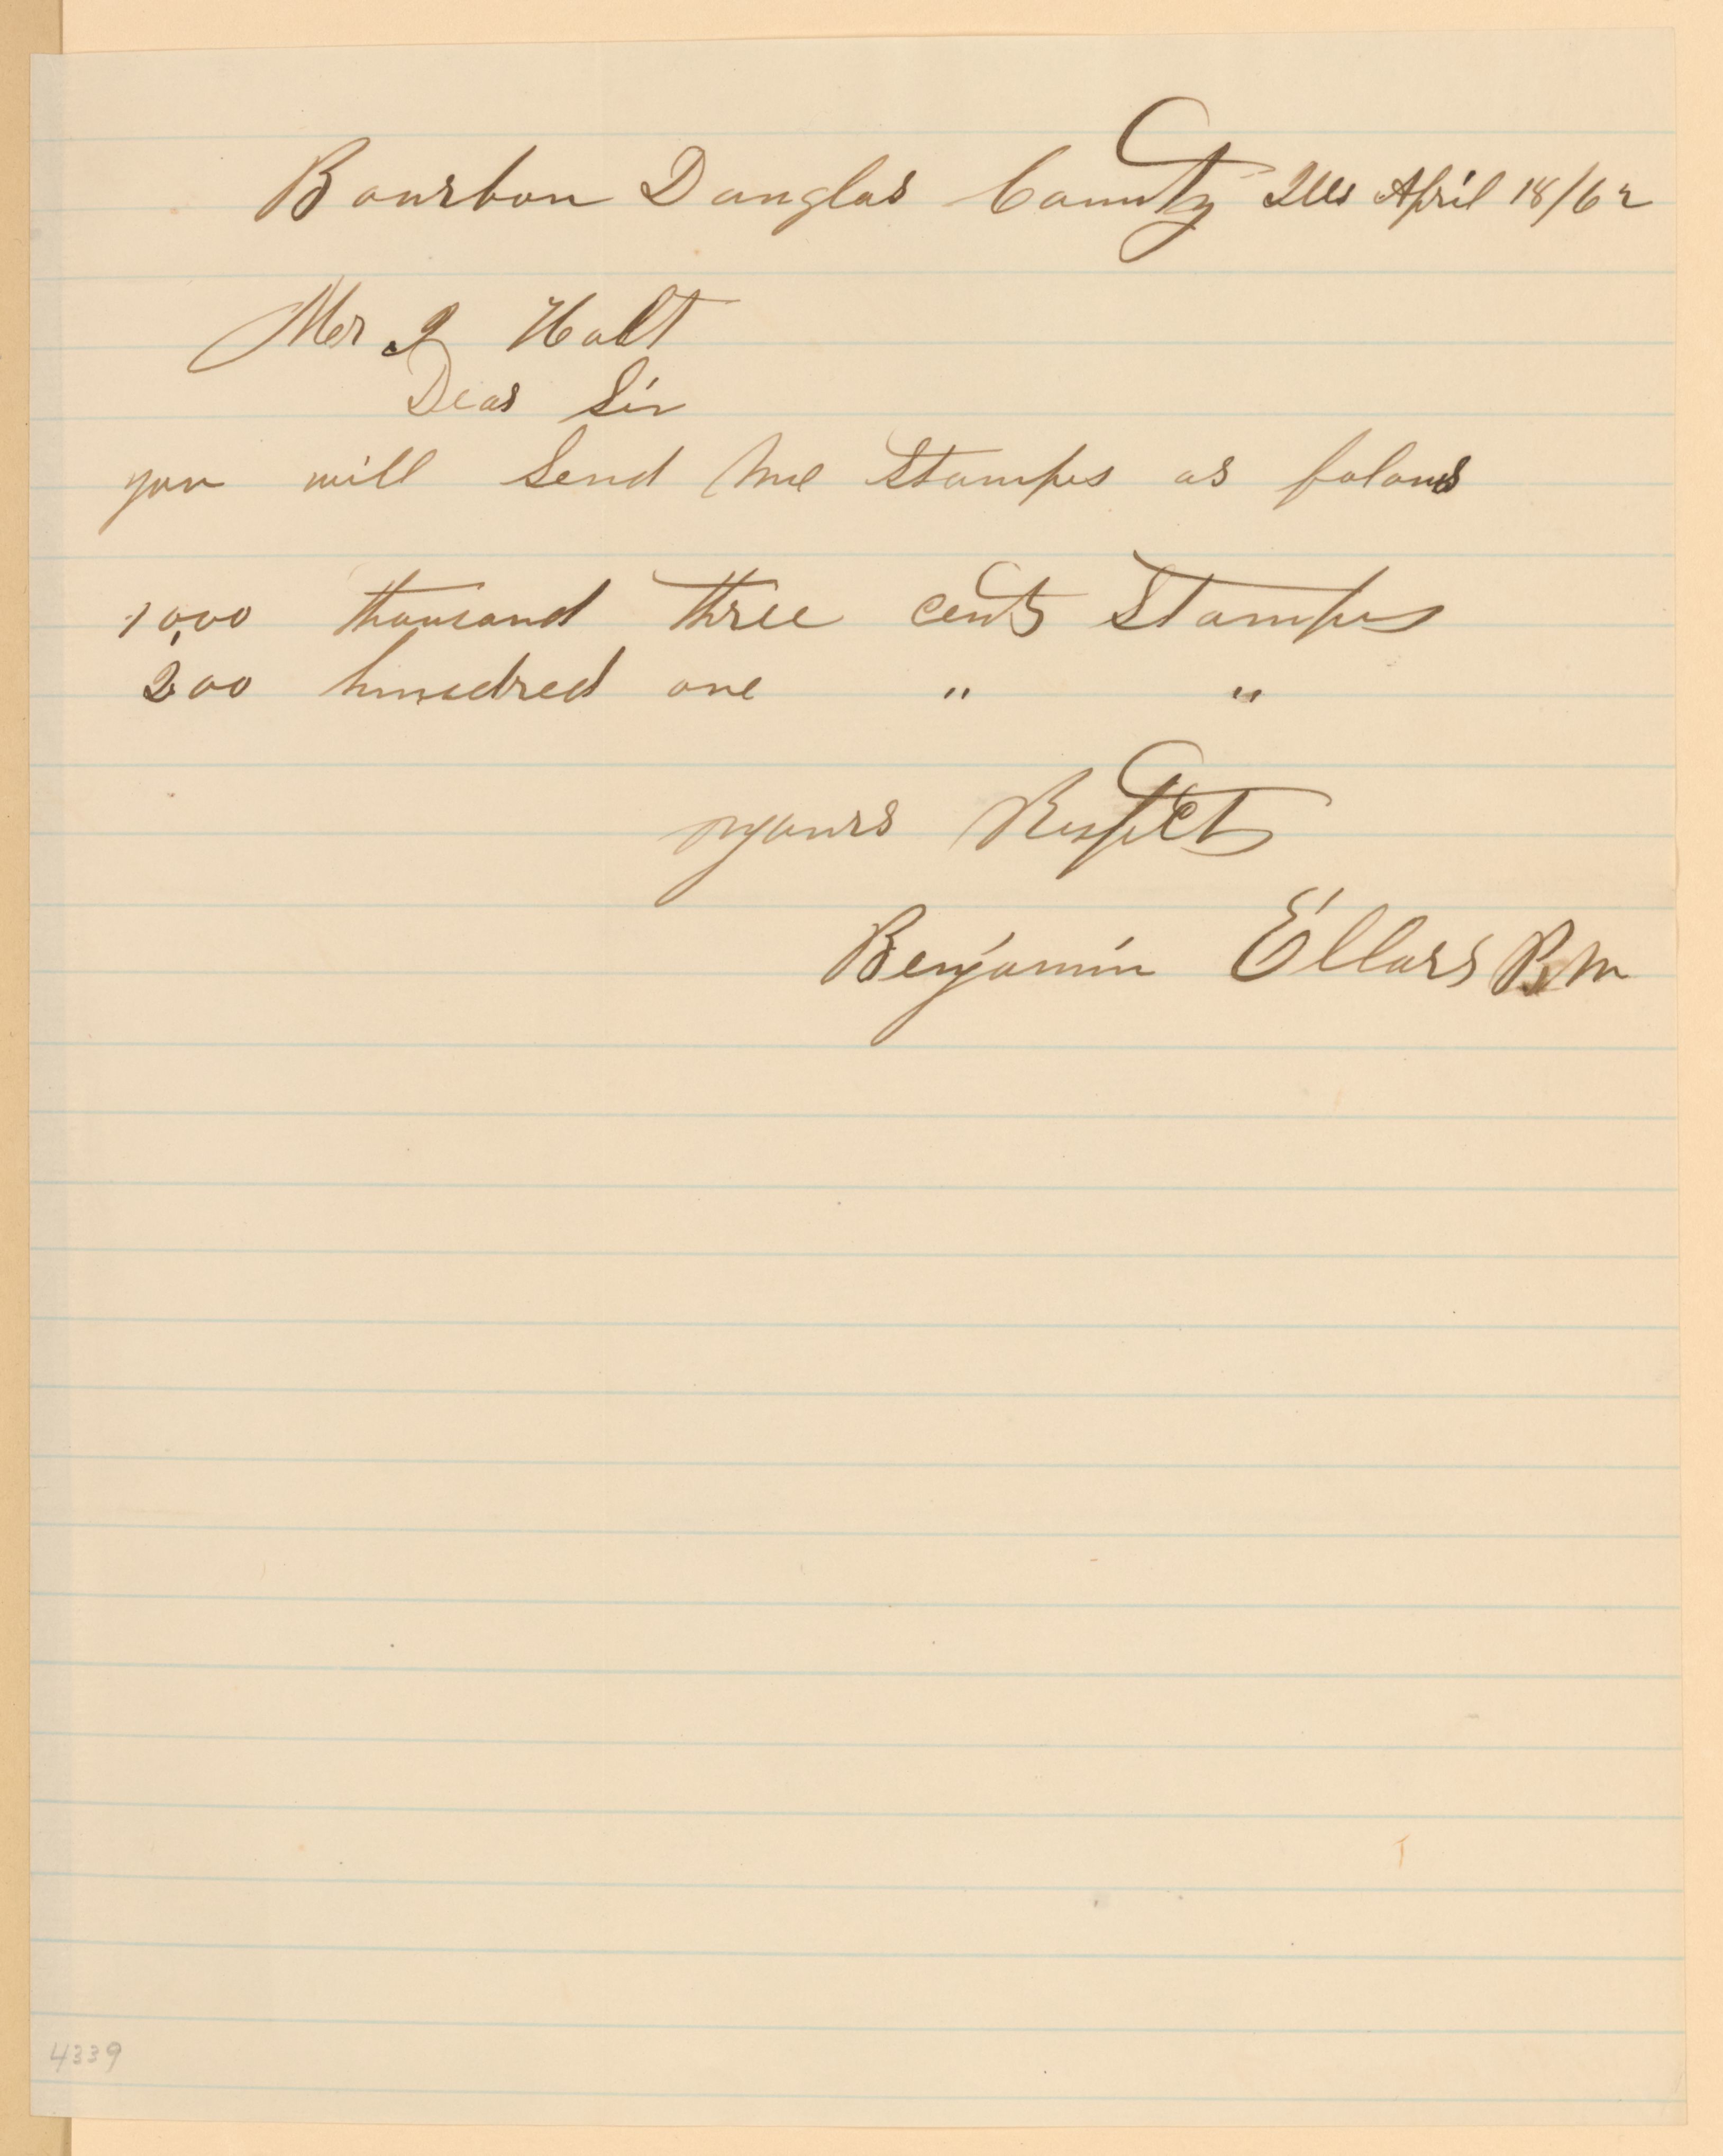 Bourbon Douglas County Ills April 18/62
Mr J Holt
Dear Sir
you will Send Me Stamps as folows
1,000 thousand three cents Stamps
200 hundred one " "
yours Respect
Benjamin Ellars P M
4339